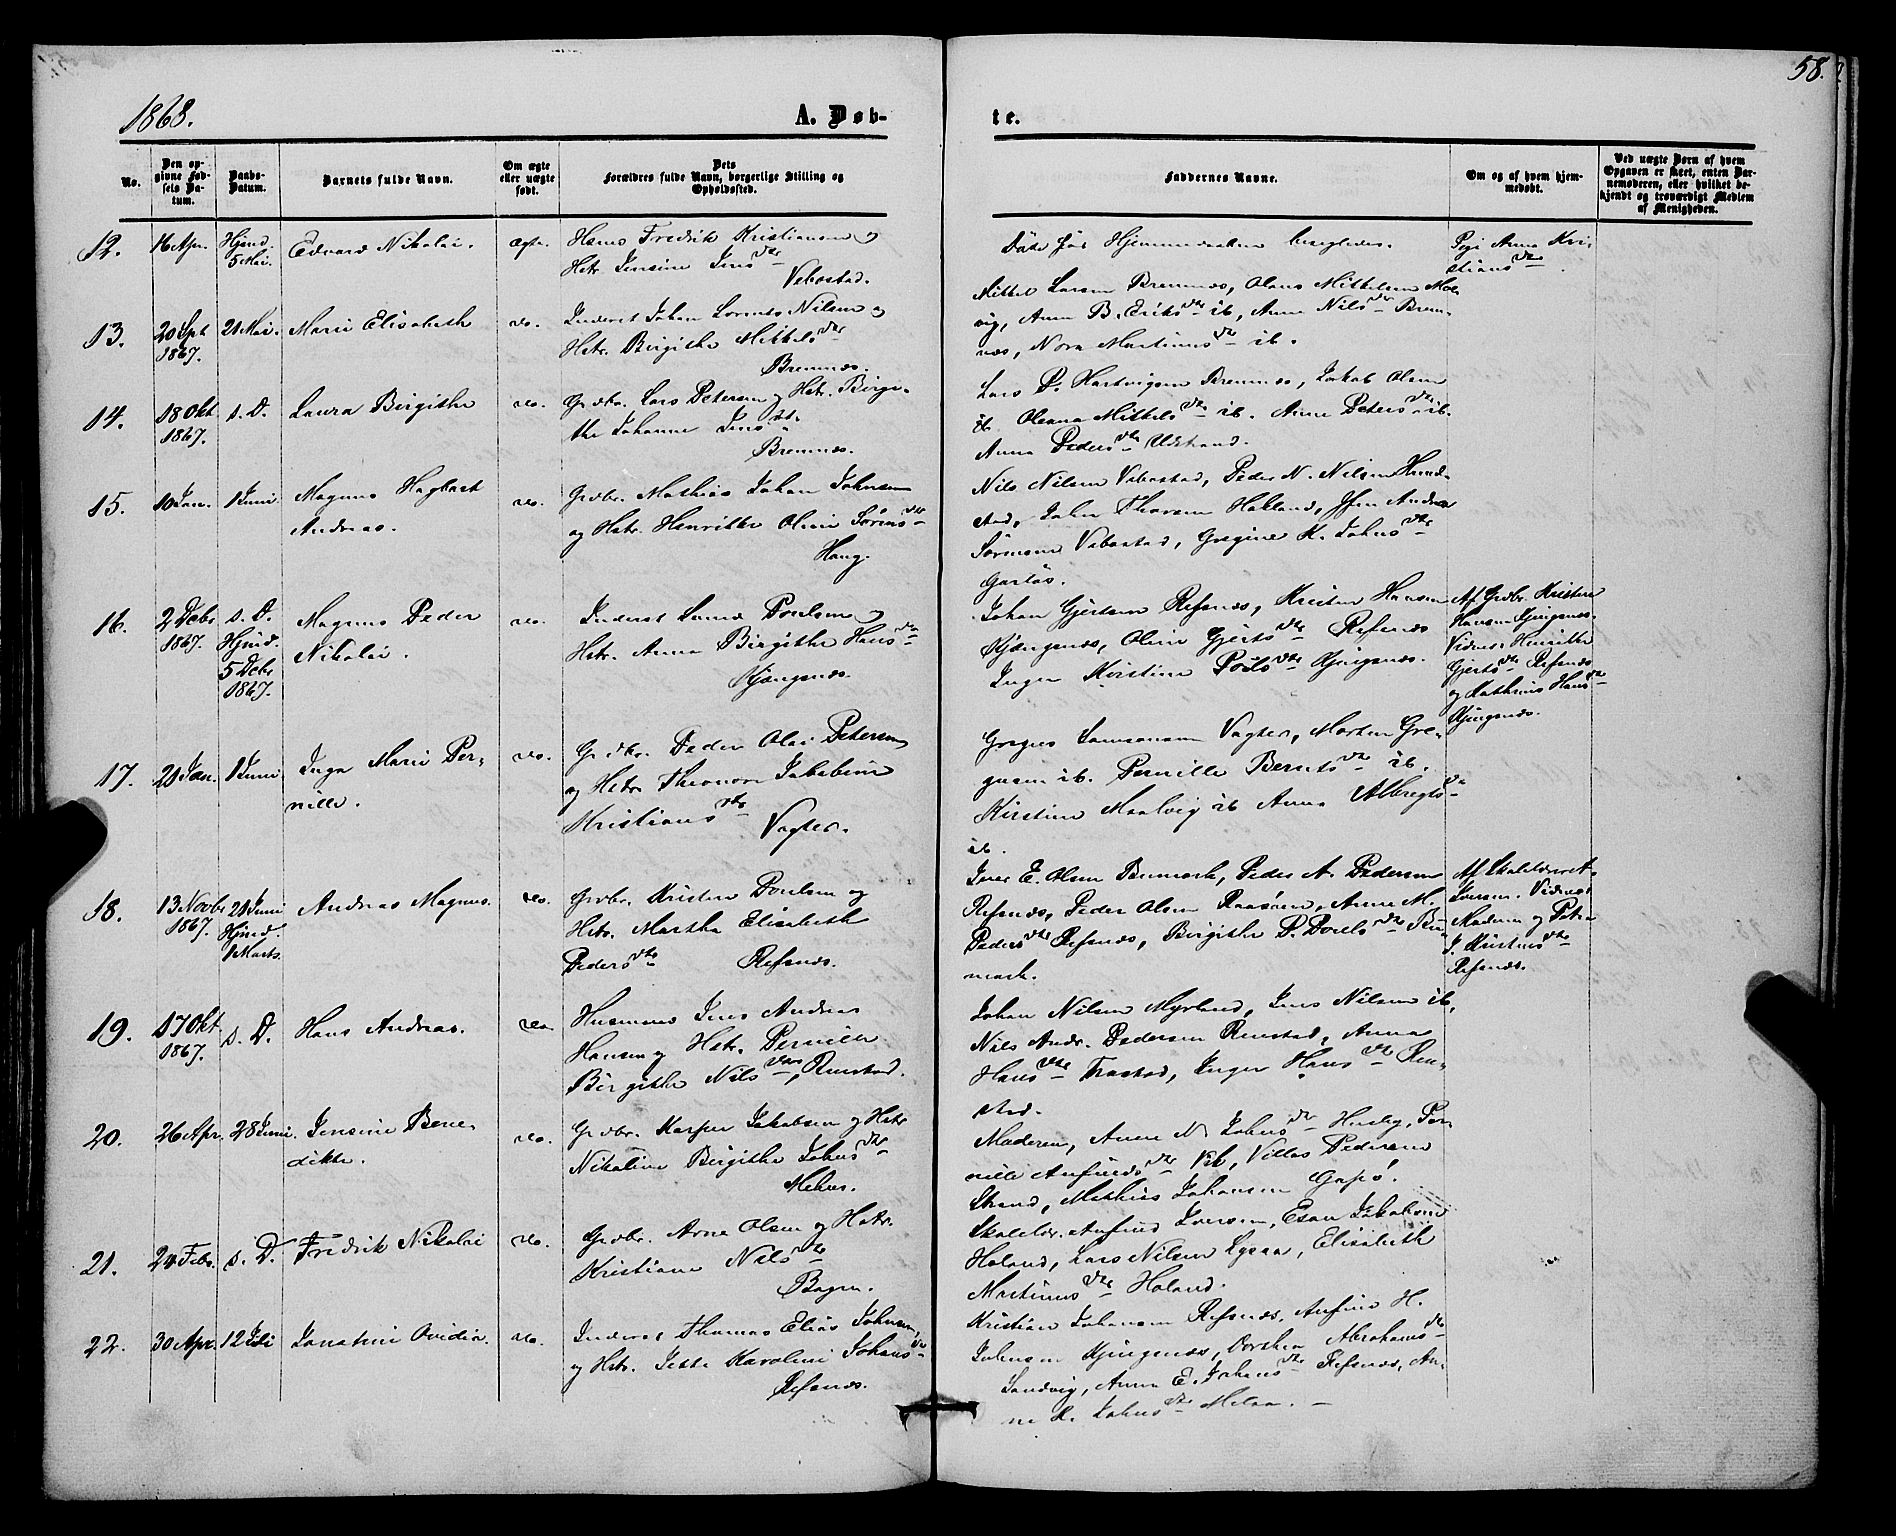 58.
1868.
A. Døb-
te.
No.
Den op-
givne Fød-
sels Da-
tum.
Daabs-
Datum.
Barnets fulde Navn.
Om ægte
eller uægte
født.
Dets
Forældres fulde Navn, borgerlige Stilling og
Opholdssted.
Faddernes Navne.
Om og af hvem hjem-
medøbt.
Ved uægte Børn af hvem
Opgaven er skeet, enten Bar-
nemoderen, eller hvilket be-
kjendt og troværdigt Medlem
af Menigheden.
12.
16 Apr.
Hjmd.
5 Mai.
Edvard Nikolai.
ægte
Hans Fredrik Kristiansen og
Hstr. Jensine Jensdtr
Vebostad.
Døde før Hjemmedaaben
Pige Anna Kri-
stiansdtr
13.
20 Spt
1867.
21 Mai.
Marie Elisabeth
do.
Inderst Johan Lorents Nilsen og
Hstr. Birgithe Mikkelsdtr
Bremnes.
Mikkel Larsen Bremnes, Olaus Mikkelsen
vig, Anne B. Eriksdtr ib, Anne Nilsdtr Brem-
nes, Nora Martinusdtr ib.
14.
18 Okt
1867.
s. D.
Laura Birgithe
do.
Grdbr. Lars Petersen og Hstr. Birgi-
the Johanne Jensdtr
Bremnes.
Lars P. Hartvigsen Bremnes, Jakob Olsen
ib. Oleana Mikkelsdtr ib. Anne Petersdtr ib.
Anna Pedersdtr Udstrand.
15.
10 Jan.
1 Juni
Magnus Hagbart
Andreas.
do.
Grdbr. Mathias Johan Johnsen
og Hstr. Henrikke Oline Sörensdtr
Haug.
Nils Nilsen Vebostad, Peder N. Nilsen Hemd-
stad, John Thoresen Hakland, Andreas
Sörensen Vebostad, Gregine K. Johnsdtr
Garsløs.
16.
2 Debr
1867.
s. D.
Hjmd.
5 Debr
1867.
Magnus Peder
Nikolai.
do.
Inderst Poulsen og
Hstr. Anna Birgithe Hansdtr
Kjøngsnes.
Johan Gjertsen Refsnes, Kristen Hansen
Kjøngsnes, Oline Gjertsdtr Refsnes
Inger Kristine Poulsdtr Kjøngsnes.
Af Grdbr. Kristen
Hansen Kjøngsnes.
Vidner: Henrikke
Gjertsdtr Refsnes
og Kathrine Hansdtr
Kjøngsnes.
17.
21 Jan.
1 Juni
Inga Marie Per-
nille.
do.
Grdbr. Peder Olai Petersen
og Hstr. Jakobine
Kristiansdtr Vogter.
Gregus Samsonsen Vagter, Morten Gre-
gusen ib. Pernille Berntsdtr ib.
Kirstine Maalvig ib Anna Albregtsdtr
ib.
18.
13 Novbr
1867.
21 Juni
Hjmd.
1 Marts.
Andreas Magnus.
do.
Grdbr. Kristen Poulsen og
Hstr. Martha Elisabeth
Pedersdtr Refsnes.
Iver E. Olsen Bremark, Peder A. Pedersen
Refsnes, Peder Olsen, Anne M.
Pedersdtr Refsnes, Birgithe P. Poulsdtr
mark.
Af Skolelærer A.
Iversen. Vidner:
Moderen og Petra
J. Kristensdtr
Refsnes.
19.
17 Okt.
1867.
s. D.
Hans Andreas.
do.
Husmand Jens Andreas
Hansen og Hstr. Pernille
Birgithe Nilsdtr, Renstad.
Johan Nilsen Myrland, Jens Nilsen ib,
Nils Andr. Pedersen Renstad, Anna
Hansdtr Trastad, Inger Hansdtr Ren-
stad.
20.
26 Apr.
28 Juni.
Jensine Bene-
dikte.
do.
Grdbr. Kasper Jakobsen og Hstr
Nikoline Birgithe Johnsdtr
Melaa.
Moderen, Anne M. Johnsdtr Husby, Per-
nille Anfindsdtr Vik, Villas Pedersen
Strand, Mathias Johansen Gapö.
21.
24 Febr.
s. D.
Fredrik Nikolai
do.
Grdbr. Arne Olsen og Hstr.
Kristiane Nilsdtr
Bogen.
Skolelr. Anfind Iversen, Esau Jakobsen
Holand, Lars Nilsen, Elisabeth
Martinusdtr Holand.
22.
30 Apr.
12 Juli
Jonatine Ovidia.
do.
Inderst Thomas Elias Johnsen
og Hstr. Jette Karoline Johansdtr
Refsnes.
Kristian Johansen Refsnes, Anfind H.
Johnsen Kjøngsnes, Dorthea Abrahamsdtr
Sandvig, Anna E. Johansdtr Refsnes, An-
ne K. Johnsdtr Melaa.